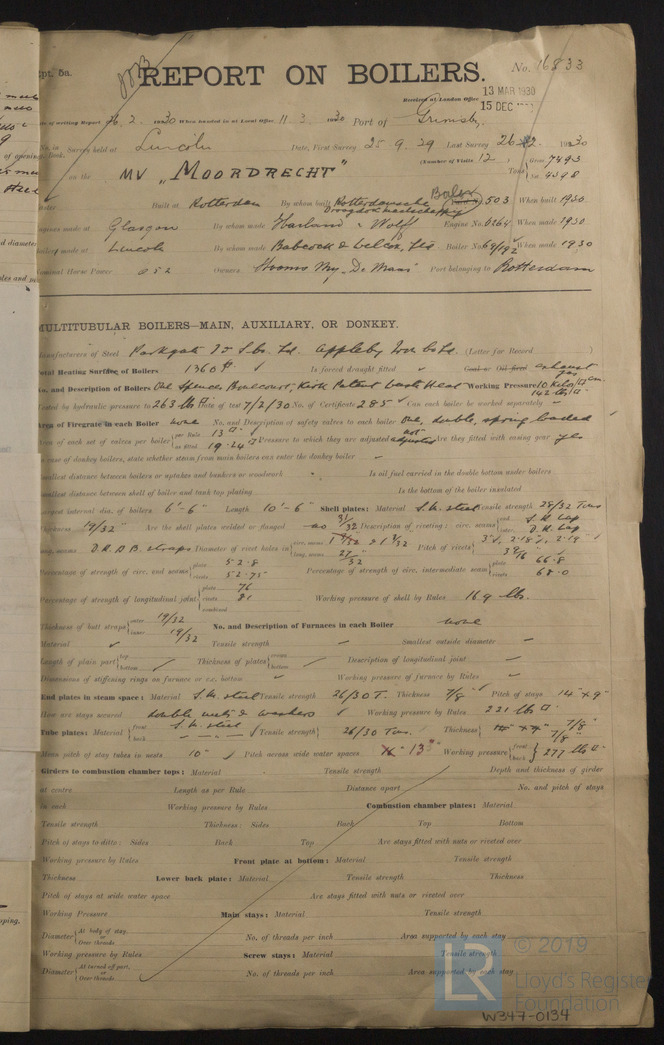 Rpt. 5a.
REPORT ON BOILERS.
No. 16833
13 MAR 1930
Received at London Office
15 DEC
Date of writing Report 26. 2. 1930 When handed in at Local Office 11. 3. 1930 Port of Grimsby.
No. in Survey held at Lincoln Date, First Survey 25. 9. 29 Last Survey 26 1930
Book.
(Number of Visits 12 ) Gross 7493
Tons
on the MV "MOORDRECHT" Net 4398
Built at Rotterdam By whom built Rotterdamsche Droogdok Maatschappij 503 When built 1930
Engines made at Glasgow By whom made Harland & Wolff Engine No. 0264 When made 1930
Boilers made at Lincoln By whom made Babcock & Wilcox, Ltd Boiler No. 69/192 When made 1930
Nominal Horse Power 052 Owners Port belonging to Rotterdam
MULTITUBULAR BOILERS—MAIN, AUXILIARY, OR DONKEY.
Manufacturers of Steel Parkgate I & S Co. Ld. Appleby Iron Co Ld. (Letter for Record )
Total Heating Surface of Boilers 1360 ft Is forced draught fitted Coal or Oil fired exhaust gas
No. and Description of Boilers One Spencer Bonecourt, Kirk Patent Waste Heat Working Pressure 10 Kilos/□cm 142 lbs/□"
Tested by hydraulic pressure to 263 lbs Date of test 7/2/30 No. of Certificate 285 Can each boiler be worked separately
Area of Firegrate in each Boiler none No. and Description of safety valves to each boiler One, double, spring loaded
Area of each set of valves per boiler per Rule 13 □" as fitted 19.24 □" Pressure to which they are adjusted not adjusted Are they fitted with easing gear yes
In case of donkey boilers, state whether steam from main boilers can enter the donkey boiler
Smallest distance between boilers or uptakes and bunkers or woodwork Is oil fuel carried in the double bottom under boilers
Smallest distance between shell of boiler and tank top plating Is the bottom of the boiler insulated
Largest internal dia. of boilers 6'-6" Length 10'-6" Shell plates: Material S.M. steel Tensile strength 28/32 Tons
Thickness 19/32" Are the shell plates welded or flanged no Description of riveting: circ. seams end S.R. lap inter. D.R. lap
long. seams D.R.D.B. straps Diameter of rivet holes in circ. seams long. seams 27/32 Pitch of rivets
Percentage of strength of circ. end seams plate 52.8 rivets 52.75 Percentage of strength of circ. intermediate seam plate 66.8 rivets 68.0
Percentage of strength of longitudinal joint plate 76 rivets 81 combined Working pressure of shell by Rules 169 lbs.
Thickness of butt straps outer 19/32 inner 19/32 No. and Description of Furnaces in each Boiler none
Material Tensile strength Smallest outside diameter
Length of plain part top bottom Thickness of plates crown bottom Description of longitudinal joint
Dimensions of stiffening rings on furnace or c.c. bottom Working pressure of furnace by Rules
End plates in steam space: Material S.M. steel Tensile strength 26/30 T. Thickness 7/8" Pitch of stays 14" x 9"
How are stays secured double nuts & washers Working pressure by Rules 221 lbs □"
Tube plates: Material front S.M. steel back Tensile strength 26/30 Tons. Thickness 7/8" 7/8"
Mean pitch of stay tubes in nests 10" Pitch across wide water spaces 13" Working pressure front back 277 lbs □"
Girders to combustion chamber tops: Material Tensile strength Depth and thickness of girder
at centre Length as per Rule Distance apart No. and pitch of stays
in each Working pressure by Rules Combustion chamber plates: Material
Tensile strength Thickness: Sides Back Top Bottom
Pitch of stays to ditto: Sides Back Top Are stays fitted with nuts or riveted over
Working pressure by Rules Front plate at bottom: Material Tensile strength
Thickness Lower back plate: Material Tensile strength Thickness
Pitch of stays at wide water space Are stays fitted with nuts or riveted over
Working Pressure Main stays: Material Tensile strength
Diameter At body of stay, or Over threads No. of threads per inch Area supported by each stay
Working pressure by Rules Screw stays: Material Tensile strength
Diameter At turned off part, or Over threads No. of threads per inch Area supported by each stay
LR
© 2019
Lloyd's Register
Foundation
W347-0134